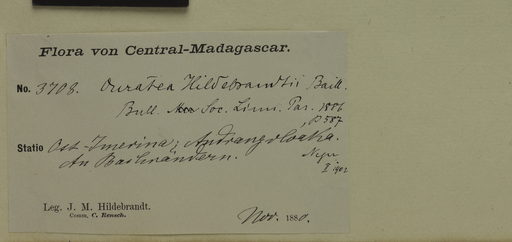 Flora von Central-Madagascar.
No. 3708. Ouratea Hildebrandtii Baill.
Bull. Soc. Linn. Par. 1886
p 587
Statio Ost-Imerina; Andrangoloaka.
An Bachrändern.
I 1902
Leg. J. M. Hildebrandt.
Comm. C. Rensch.
Nov. 1880.